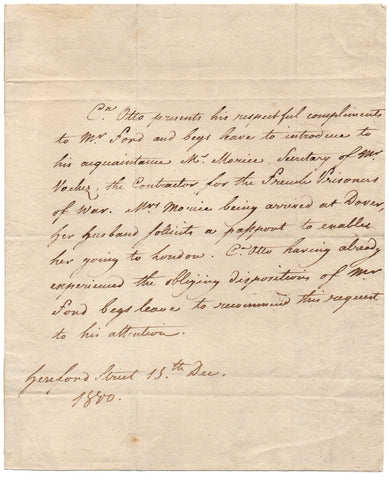 Cn. Otto presents his respectful compliments
to Mr Ford and begs leave to introduce to
his acquaintance Mr. Morice, Secretary of Mr.
Vochez, the Contractor for the French Prisoners
of War. Mrs Morice being arrived at Dover,
her husband solicits a passport to enable
her going to London. Cn Otto having already
experienced the obliging dispositions of Mr
Ford begs leave to recommend this request
to his attention.
Hereford Street 15.th Dec.
1800.